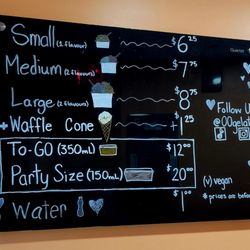 Small (1 flavour) $6.25
Medium (2 flavours) $7.75
Large (2 flavours) $8.75
+ Waffle Cone +1.25
To-GO (350mL) $12.00
Party Size (150mL) $20.00
Water $1.00
Follow U
@00gelat
(v) vegan
* prices are befor